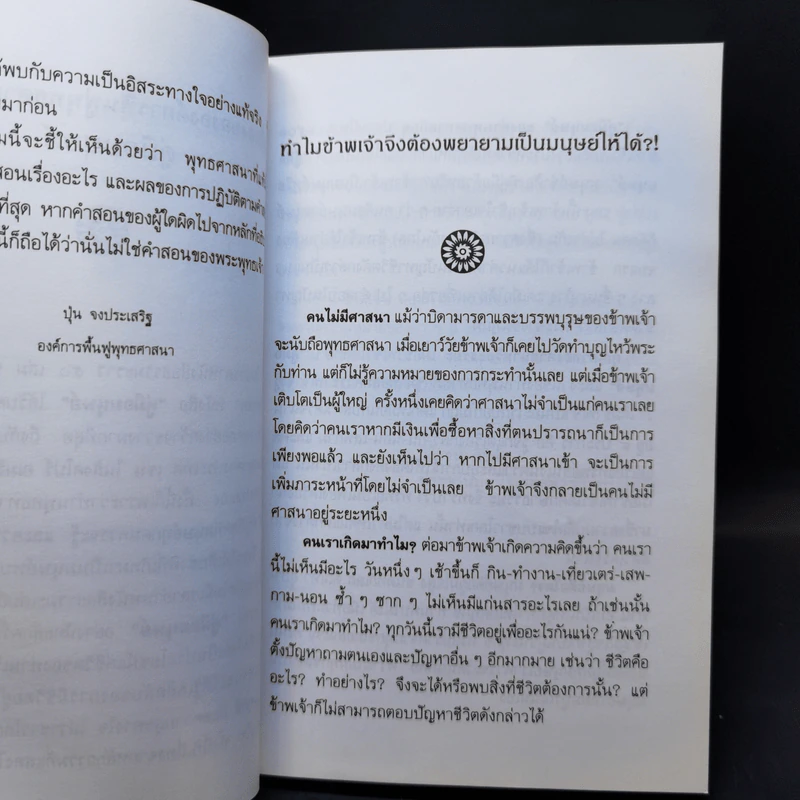 พบกับความเป็นอิสระทางใจอย่างแท้จริง
มาก่อน
นี้จะชี้ให้เห็นด้วยว่า พุทธศาสนาที่
สอนเรื่องอะไร และผลของการปฏิบัติตาม
ที่สุด หากคำสอนของผู้ใดผิดไปจากหลักที่
นี้ก็ถือได้ว่านั่นไม่ใช่คำสอนของพระพุทธเจ้า
ปุ่น จงประเสริฐ
องค์การฟื้นฟูพุทธศาสนา
ทำไมข้าพเจ้าจึงต้องพยายามเป็นมนุษย์ให้ได้?!
คนไม่มีศาสนา แม้ว่าบิดามารดาและบรรพบุรุษของข้าพเจ้า
จะนับถือพุทธศาสนา เมื่อเยาว์วัยข้าพเจ้าก็เคยไปวัดทำบุญไหว้พระ
กับท่าน แต่ก็ไม่รู้ความหมายของการกระทำนั้นเลย แต่เมื่อข้าพเจ้า
เติบโตเป็นผู้ใหญ่ ครั้งหนึ่งเคยคิดว่าศาสนาไม่จำเป็นแก่คนเราเลย
โดยคิดว่าคนเราหากมีเงินเพื่อซื้อหาสิ่งที่ตนปรารถนาก็เป็นการ
เพียงพอแล้ว และยังเห็นไปว่า หากไปมีศาสนาเข้า จะเป็นการ
เพิ่มภาระหน้าที่โดยไม่จำเป็นเลย ข้าพเจ้าจึงกลายเป็นคนไม่มี
ศาสนาอยู่ระยะหนึ่ง
คนเราเกิดมาทำไม? ต่อมาข้าพเจ้าเกิดความคิดขึ้นว่า คนเรา
นี้ไม่เห็นมีอะไร วันหนึ่งๆ เช้าขึ้นก็ กิน-ทำงาน-เที่ยวเตร่-เสพ-
กาม-นอน ซ้ำ ๆ ซาก ๆ ไม่เห็นมีแก่นสารอะไรเลย ถ้าเช่นนั้น
คนเราเกิดมาทำไม? ทุกวันนี้เรามีชีวิตอยู่เพื่ออะไรกันแน่? ข้าพเจ้า
ตั้งปัญหาถามตนเองและปัญหาอื่น ๆ อีกมากมาย เช่นว่า ชีวิตคือ
อะไร? ทำอย่างไร? จึงจะได้หรือพบสิ่งที่ชีวิตต้องการนั้น? แต่
ข้าพเจ้าก็ไม่สามารถตอบปัญหาชีวิตดังกล่าวได้